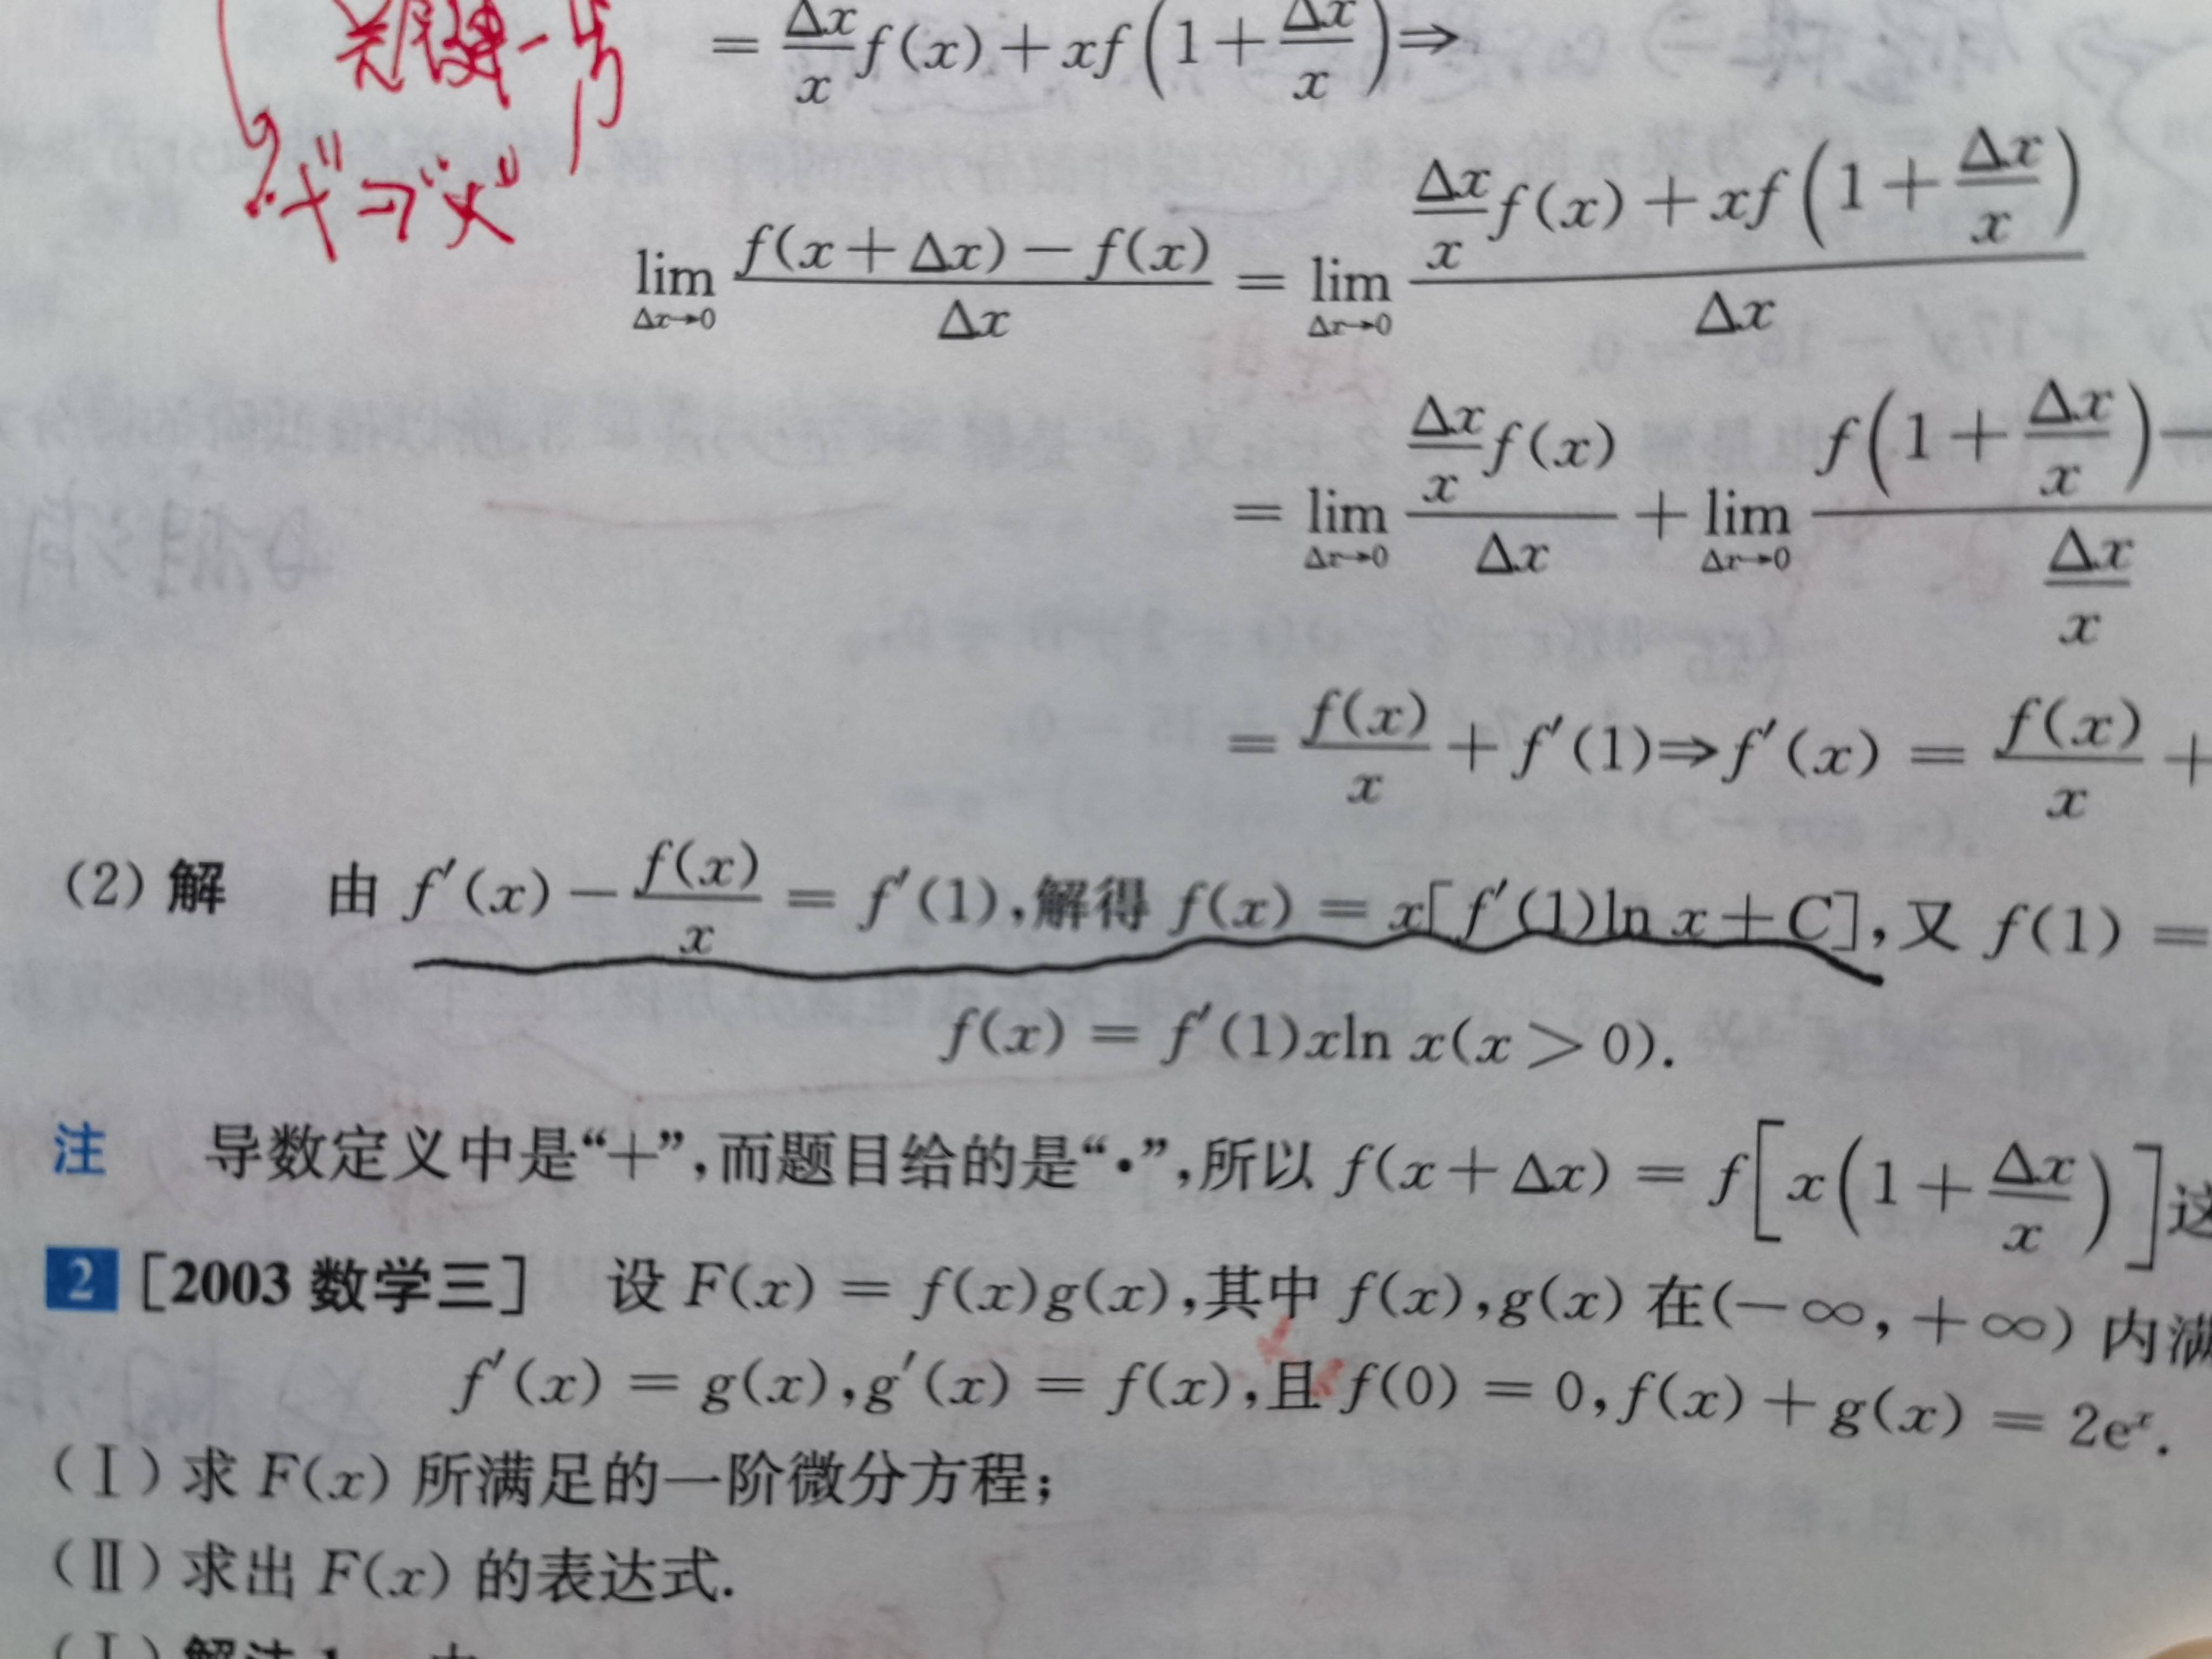 关键一步
"+"⇒"×"
= Δx/x f(x) + xf(1 + Δx/x) ⇒
lim_{Δx→0} (f(x + Δx) − f(x))/Δx = lim_{Δx→0} (Δx/x f(x) + xf(1 + Δx/x))/Δx
= lim_{Δx→0} (Δx/x f(x))/Δx + lim_{Δx→0} (f(1 + Δx/x) −)/(Δx/x)
= f(x)/x + f′(1) ⇒ f′(x) = f(x)/x +
(2) 解 由 f′(x) − f(x)/x = f′(1),解得 f(x) = x[f′(1)ln x + C],又 f(1) =
f(x) = f′(1)xln x(x > 0).
注 导数定义中是“+”,而题目给的是“·”,所以 f(x + Δx) = f[x(1 + Δx/x)]这
2 [2003 数学三] 设 F(x) = f(x)g(x),其中 f(x),g(x) 在(−∞, +∞) 内满
f′(x) = g(x),g′(x) = f(x),且 f(0) = 0,f(x) + g(x) = 2eˣ.
(Ⅰ) 求 F(x) 所满足的一阶微分方程;
(Ⅱ) 求出 F(x) 的表达式.